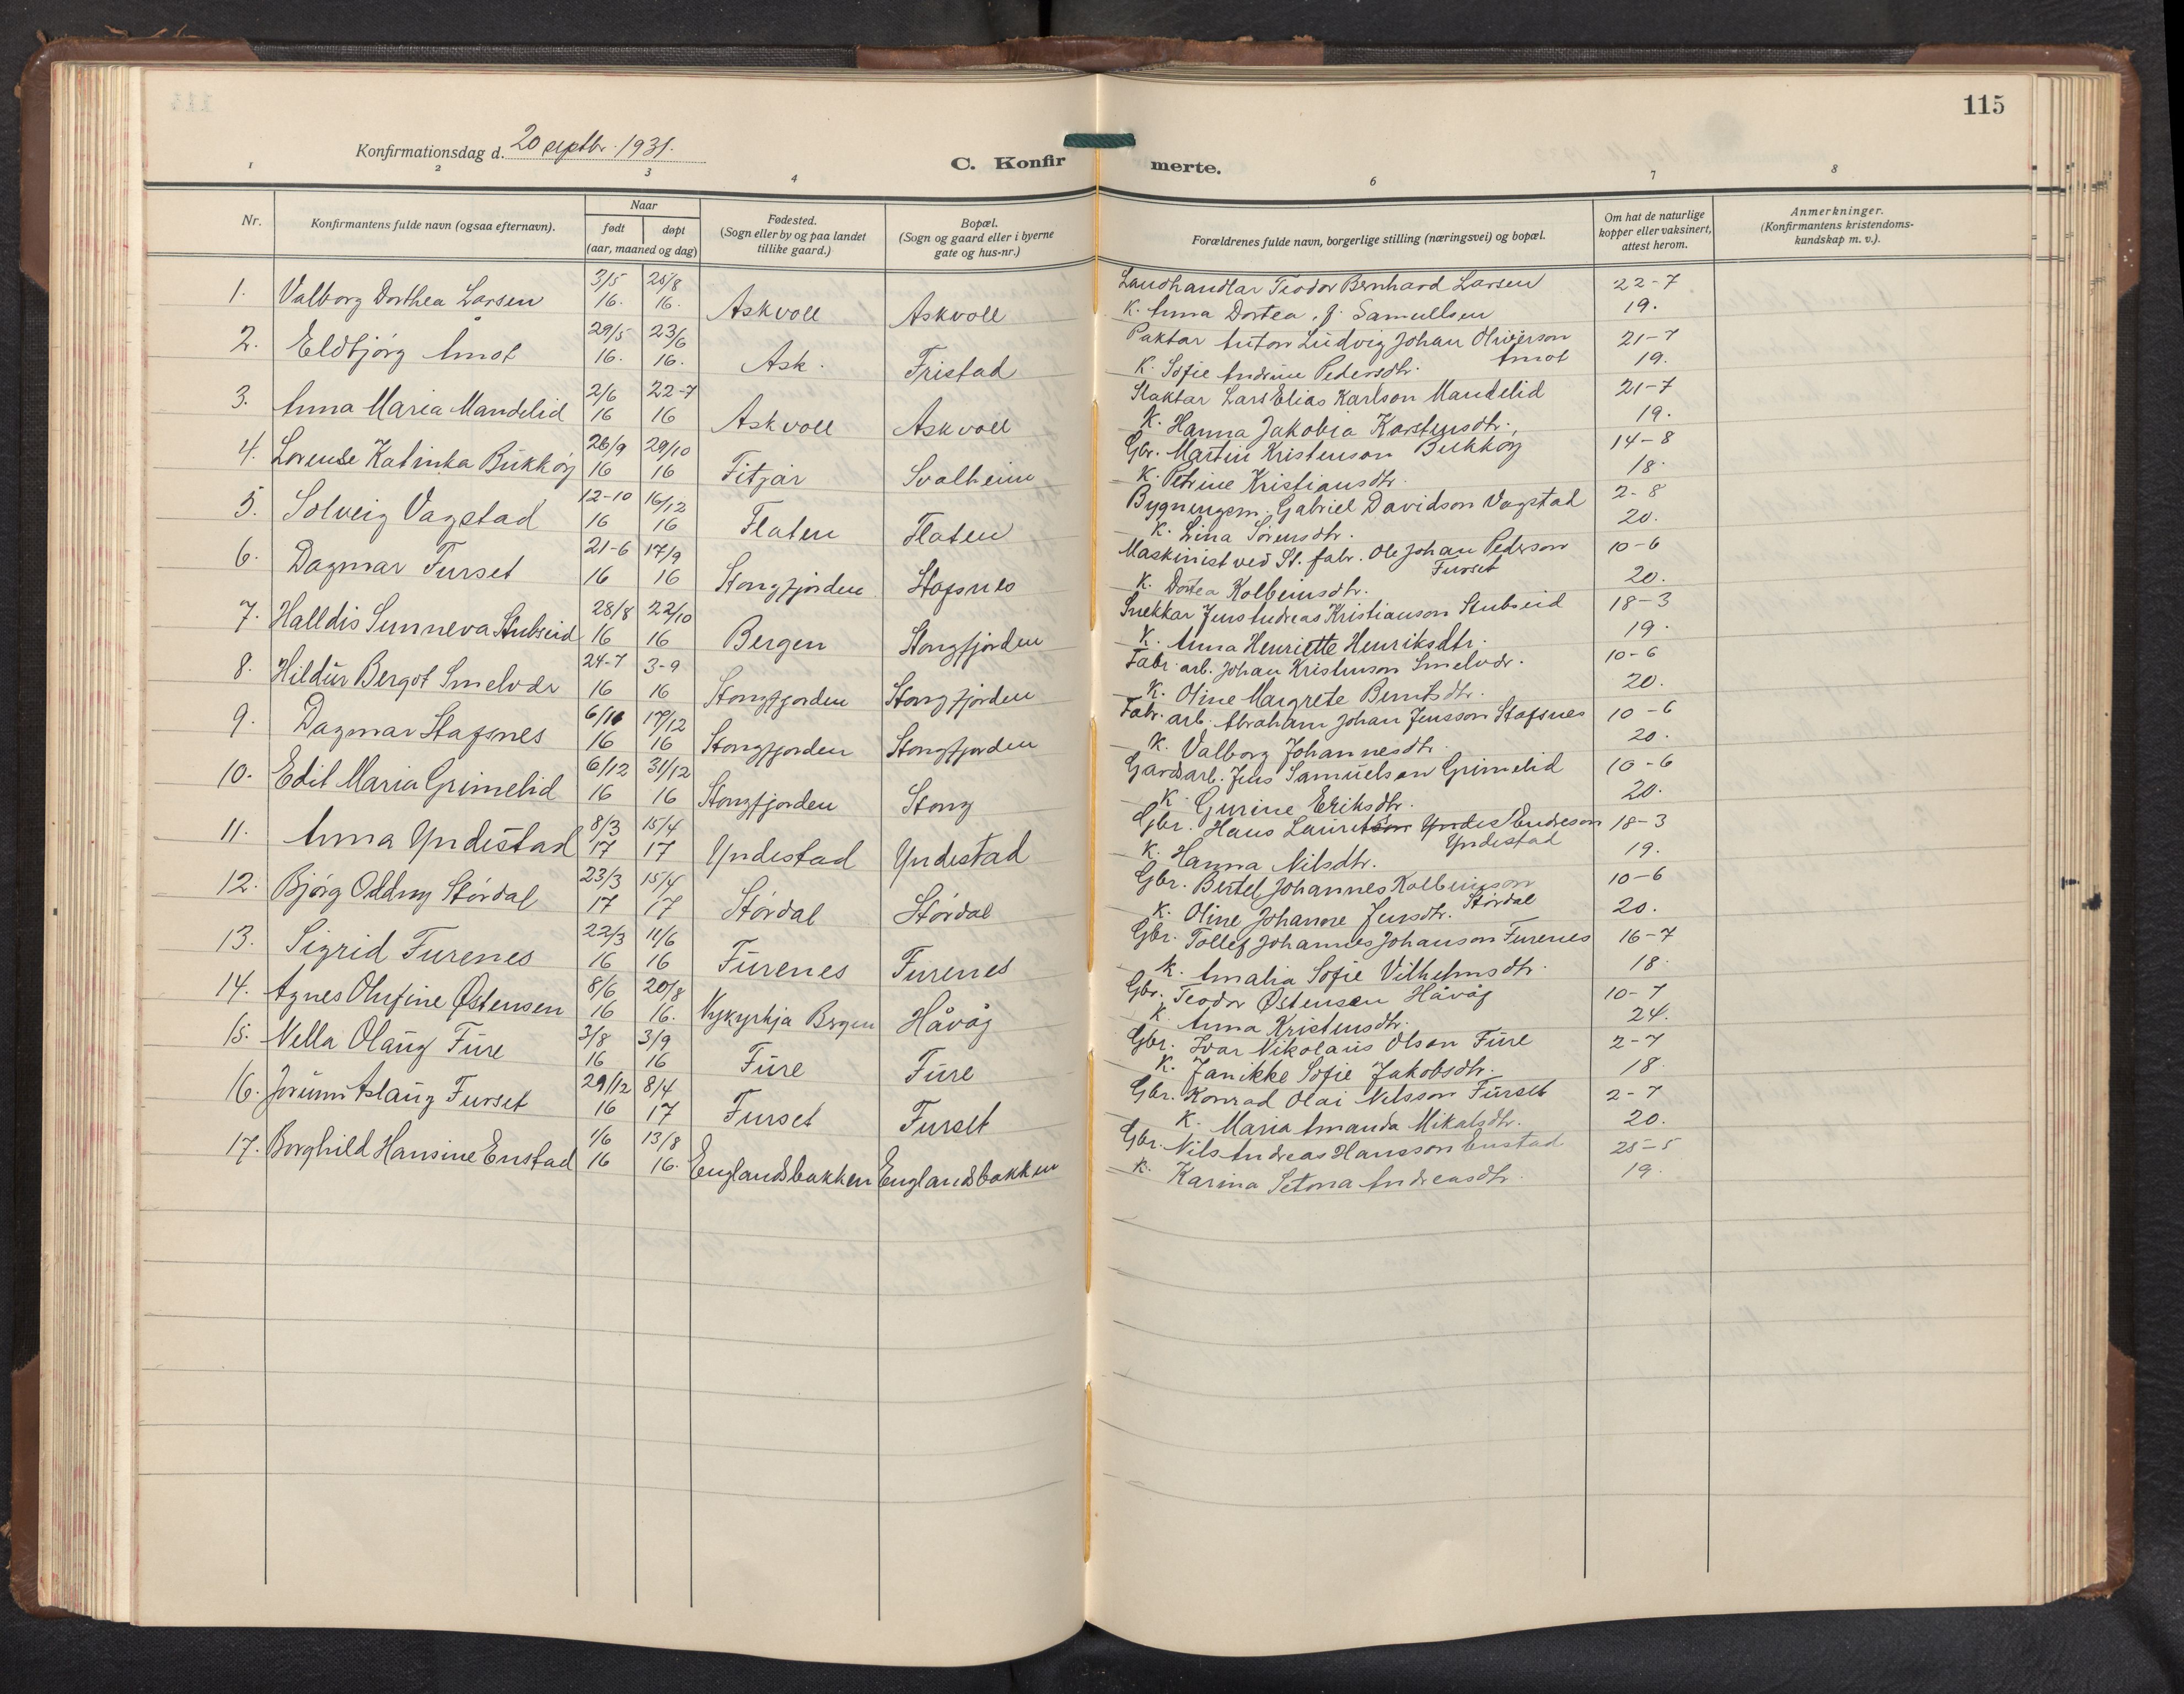 115
Konfirmationsdag d. 20 septbr. 1931.
C. Konfirmerte.
1 2 3 4 6 7 8
Nr. | Konfirmantens fulde navn (ogsaa efternavn). | Naar født døpt (aar, maaned og dag) | Fødested. (Sogn eller by og paa landet tillike gaard.) | Bopæl. (Sogn og gaard eller i byerne gate og hus-nr.) | Forældrenes fulde navn, borgerlige stilling (næringsvei) og bopæl. | Om hat de naturlige kopper eller vaksinert, attest herom. | Anmerkninger. (Konfirmantens kristendomskundskap m. v.).
1. Valborg Dorthea Larsen 3/5 16. 25/8 16. Askvoll Askvoll Landhandlar Teodor Bernhard Larsen 22-7
K. Anna Dortea J. Samuelsen 19.
2. Eldbjørg Åmot 29/5 16. 23/6 16. Ask. Fristad Paktar Anton Ludvig Johan Oliverson Åmot 21-7
K. Sofie Andrine Pedersdtr. 19.
3. Anna Maria Mandelid 2/6 16 22-7 16 Askvoll Askvoll Slaktar Lars Elias Karlson Mandelid 21-7
K. Hanna Jakobia Karstensdtr. 19.
4. Lorense Katinka Bukkøy 26/9 16 29/10 16 Fitjar Svalheim Gbr. Martin Kristenson Bukkøy 14-8
K. Petrine Kristiansdtr. 18.
5. Solveig Vagstad 12-10 16 16/12 16 Flaten Flaten Bygningsm. Gabriel Davidson Vagstad 2-8
K. Lina Sørensdtr. 20.
6. Dagmar Furset 21-6 16 17/9 16 Stongfjorden Stafsnes Maskinist ved St. fabr. Ole Johan Pederson Furset 10-6
K. Dortea Kolbeinsdtr. 20.
7. Halldis Sunneva Stubseid 28/8 16 22/10 16 Bergen Stongfjorden Snekkar Jens Andreas Kristianson Stubseid 18-3
K. Anna Henriette Henriksdtr. 19.
8. Hildur Bergot Smelvær 24-7 16 3-9 16 Stongfjorden Stongfjorden Fabr. arb. Johan Kristenson Smelvær. 10-6
K. Oline Margrete Berntsdtr. 20.
9. Dagmar Stafsnes 6/11 16 17/12 16 Stongfjorden Stongfjorden Fabr. arb. Abraham Johan Jensson Stafsnes 10-6
K. Valborg Johannesdtr. 20.
10. Edit Maria Grimelid 6/12 16 31/12 16 Stongfjorden Stong Gardsarb. Jens Samuelson Grimelid 10-6
K. Gurine Eriksdtr. 20.
11. Anna Yndestad 8/3 17 15/4 17 Yndestad Yndestad Gbr. Hans Lauritson Yndes Endreson Yndestad 18-3
K. Hanna Nilsdtr. 19.
12. Bjørg Oddny Stórdal 23/3 17 15/4 17 Stórdal Stórdal Gbr. Bertel Johannes Kolbeinson Stórdal 10-6
K. Oline Johanne Jensdtr. 20.
13. Sigrid Furenes 22/3 16 11/6 16 Furenes Furenes Gbr. Tollef Johannes Johanson Furenes 16-7
K. Amalia Sofie Vilhelmsdtr. 18.
14. Agnes Olufine Østensen 8/6 16 20/8 16. Nykyrkja Bergen Håvåg Gbr. Teodor Østensen Håvåg 10-7
K. Anna Kristensdtr. 24.
15. Nella Olaug Fure 3/8 16 3/9 16 Fure Fure Gbr. Ivar Nikolaus Olson Fure 2-7
K. Janikke Sofie Jakobsdtr. 18
16. Jorunn Aslaug Furset 29/12 16 8/4 17 Furset Furset Gbr. Konrad Olai Nilsson Furset 2-7
K. Maria Amanda Mikalsdtr. 20.
17. Borghild Hansine Enstad 1/6 16 13/8 16. Englandsbakken Englandsbakken Gbr. Nils Andreas Hansson Enstad 25-5
K. Karina Setona Andreasdtr. 19.